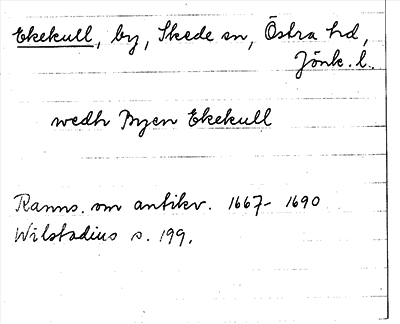 Ekekull, by, Skede sn, Östra hd,
Jönk. l.
wedh Byen Ekekull
Ranns. om antikv. 1667-1690
Wilstadius s. 199.